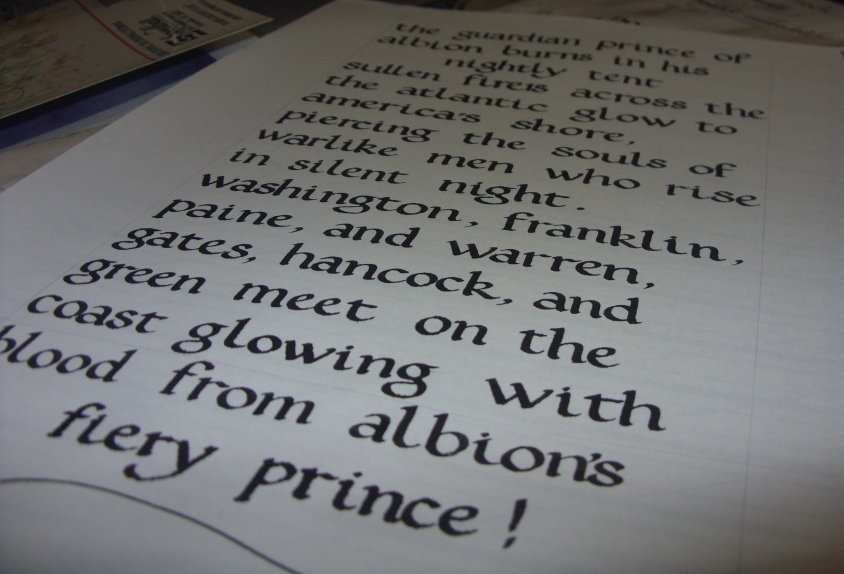 the guardian prince of
albion burns in his
nightly tent
sullen fires across the
the atlantic glow to
america's shore,
piercing the souls of
warlike men who rise
in silent night.
washington, franklin,
paine, and warren,
gates, hancock, and
green meet on the
coast glowing with
blood from albion's
fiery prince!